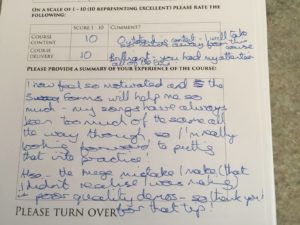 ON A SCALE OF 1 - 10 (10 REPRESENTING EXCELLENT) PLEASE RATE THE
FOLLOWING:
SCORE 1 - 10 COMMENT?
COURSE CONTENT 10 Outstanding content - I will take away from this course
COURSE DELIVERY 10 Brilliant - you had my attention all of the
PLEASE PROVIDE A SUMMARY OF YOUR EXPERIENCE OF THE COURSE:
I now feel so motivated and the
forms will help me so
much - my songs have always
been too much of the same all
the way through so I'm really
looking forward to putting
that into practice!
Also - the mega mistake I make (that
I didn't realise I was making)
poor quality demos - so thank you
for that tip!
PLEASE TURN OVER